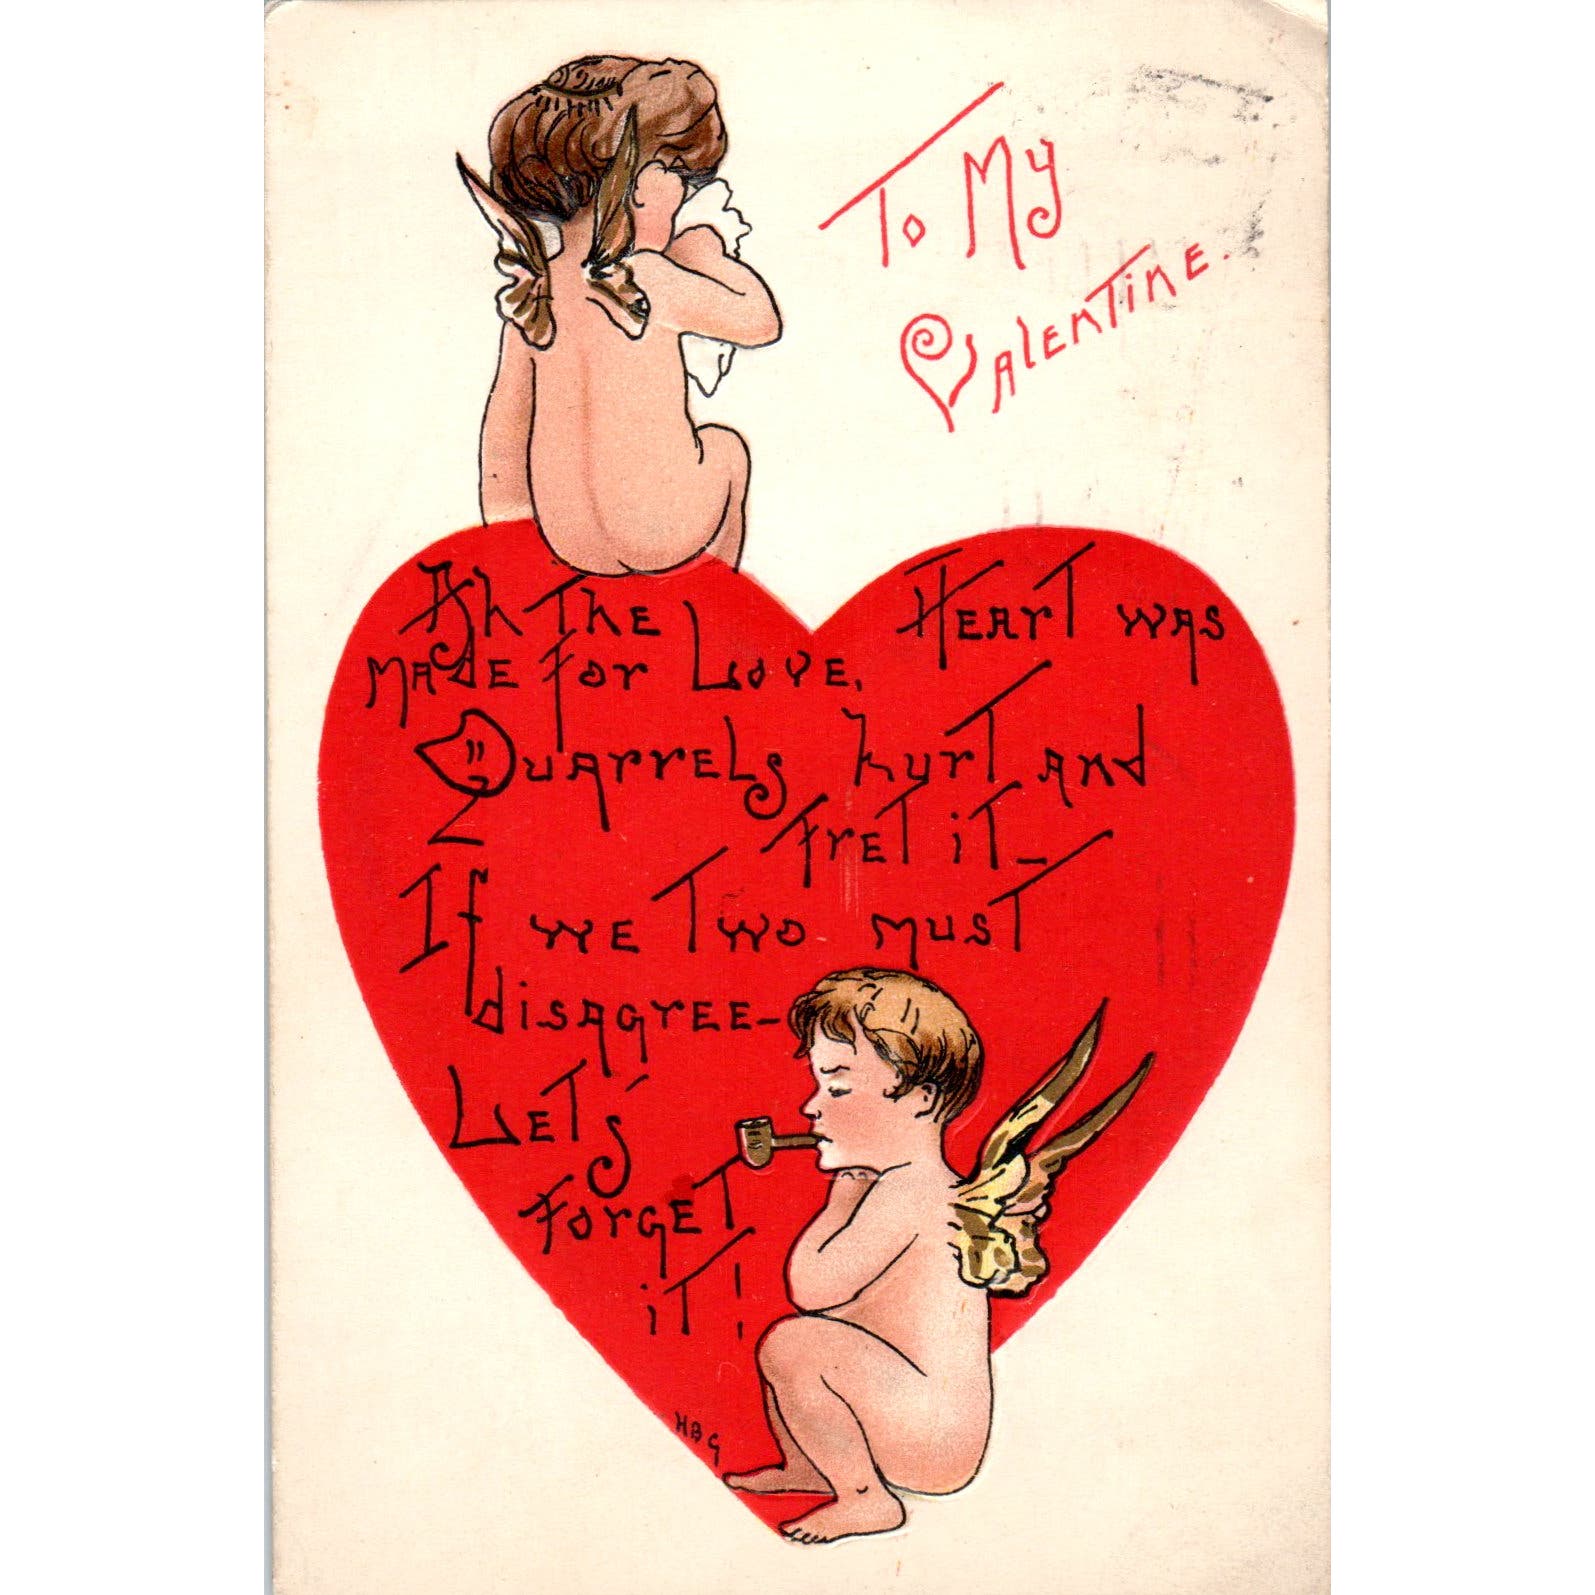 To My
Valentine.
Ah The Heart was
made for Love,
Quarrels hurt and
fret it–
If we two must
disagree–
Let's
Forget
it!
HBG